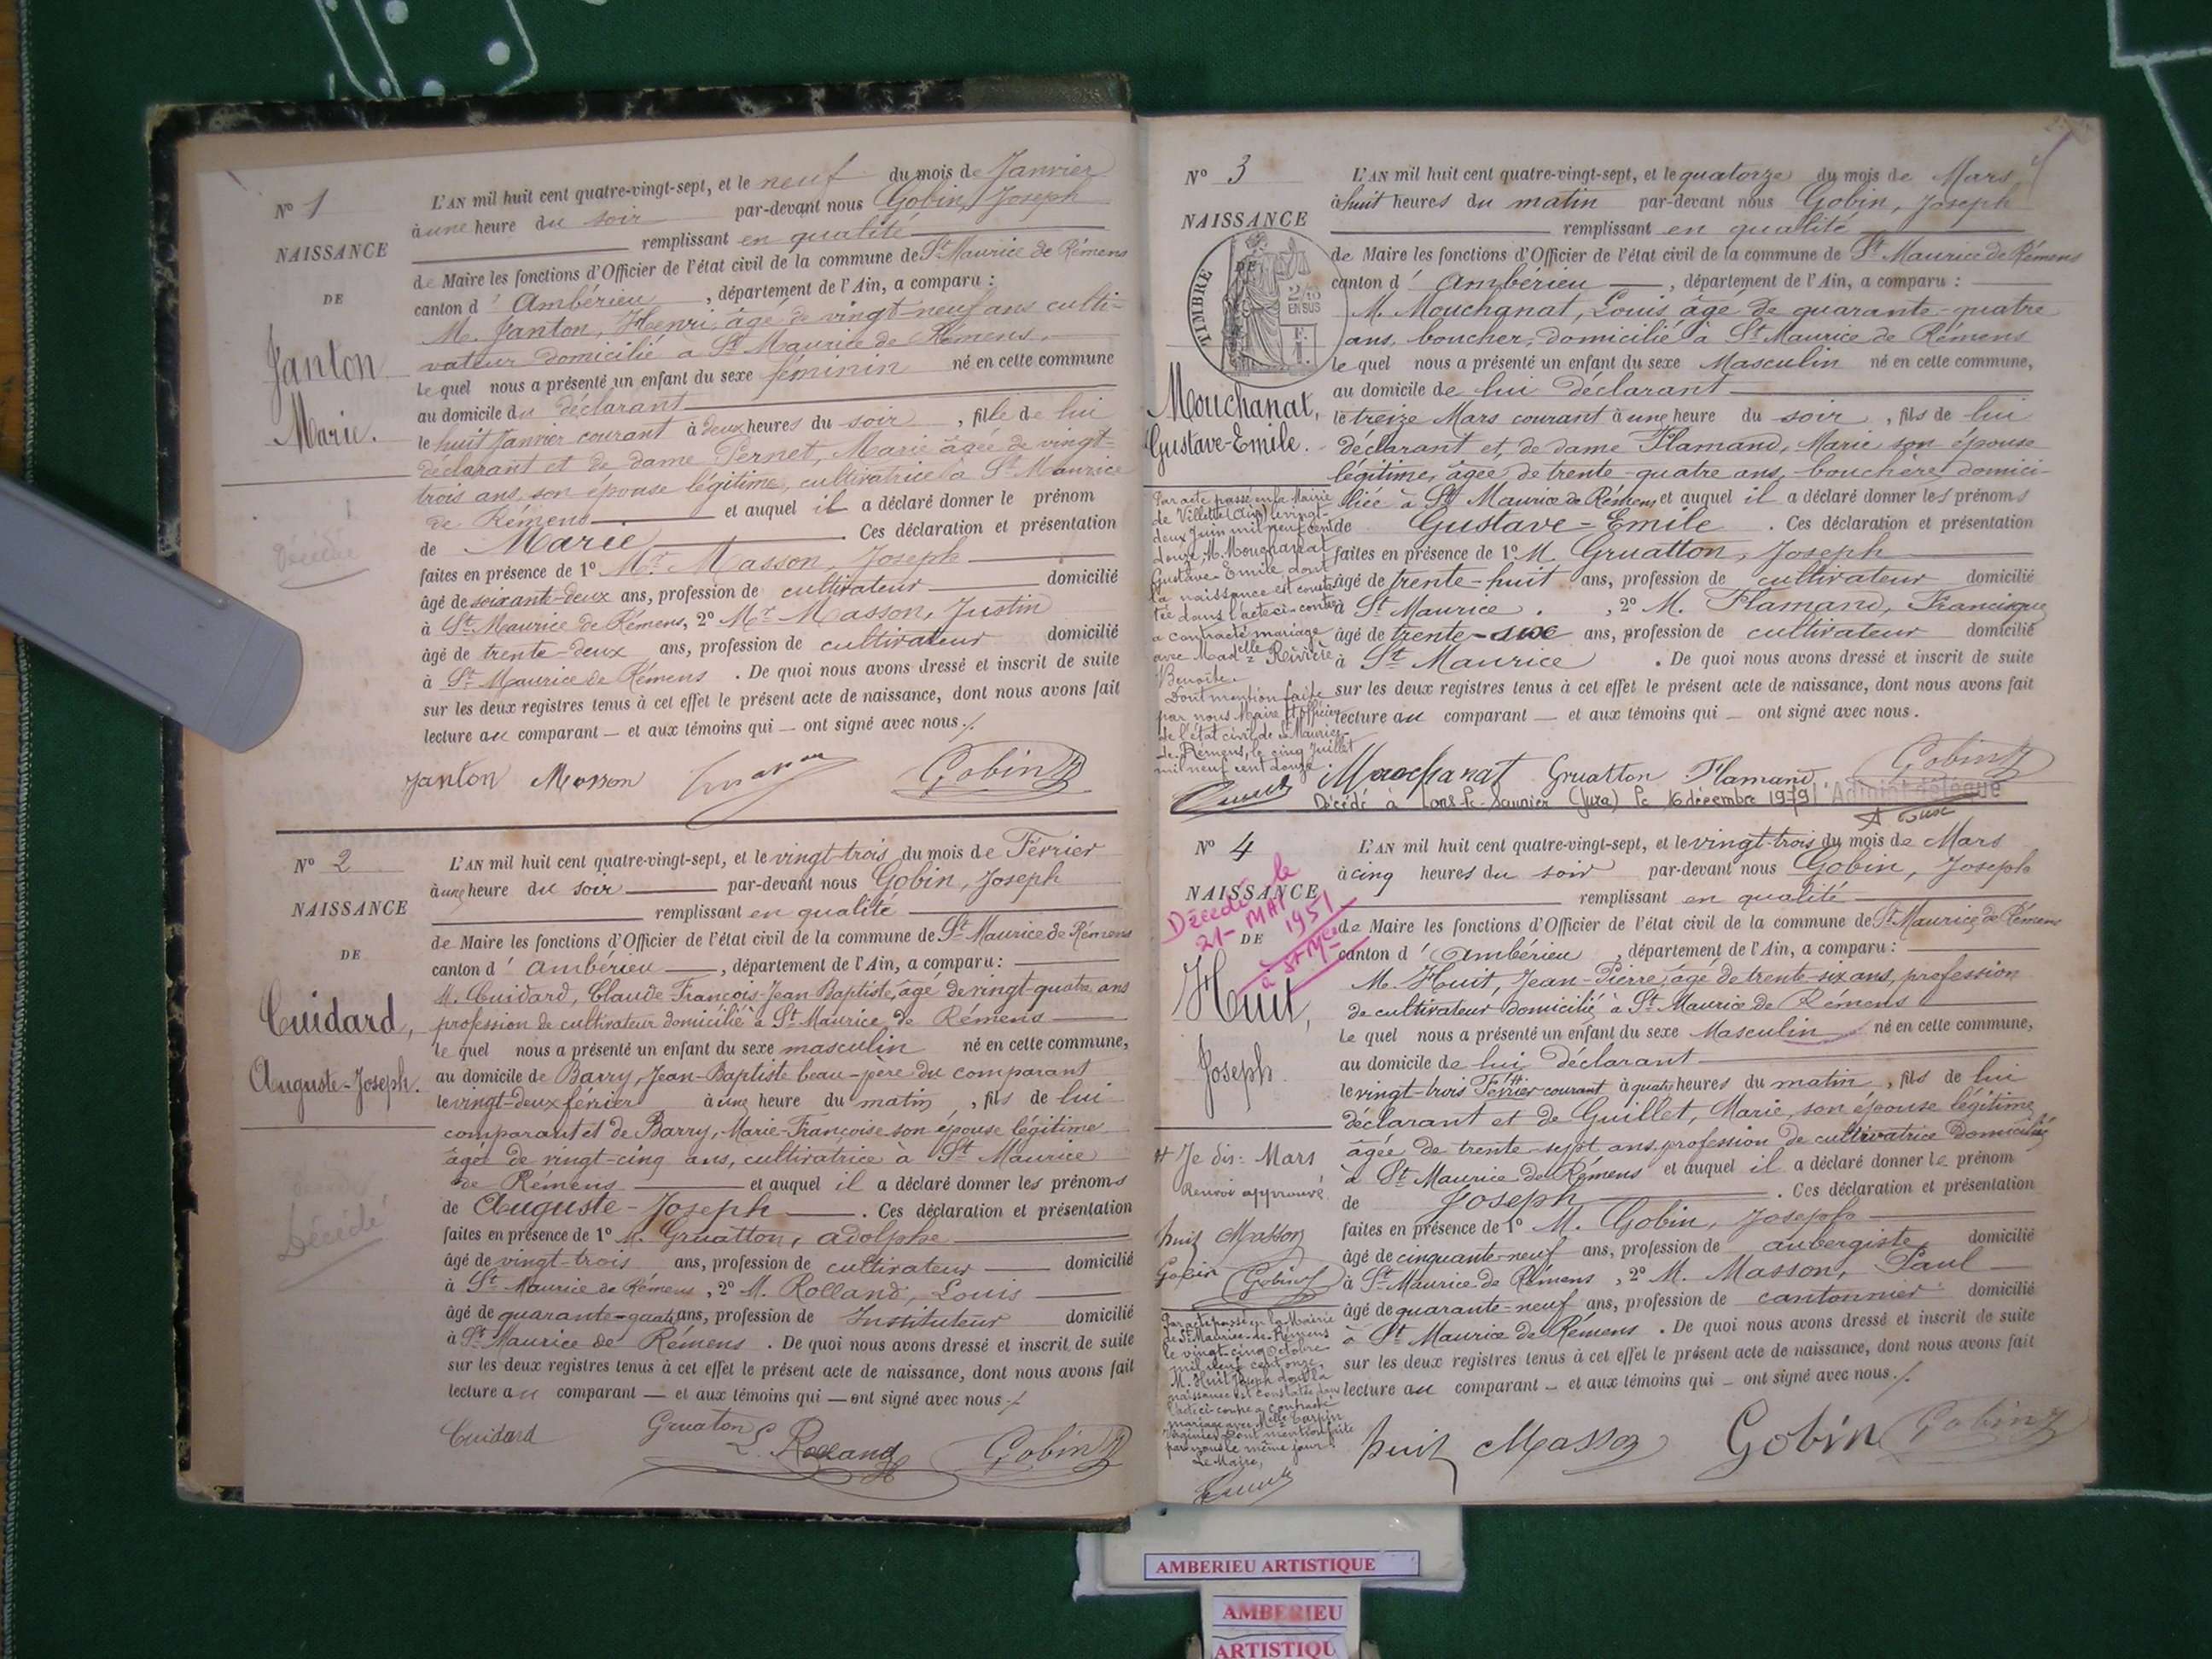 N° 1
NAISSANCE
DE
Janton
Marie.
Décédée
L'AN mil huit cent quatre-vingt-sept, et le neuf du mois de Janvier
à une heure du soir par-devant nous Gobin, Joseph
remplissant en qualité
de Maire les fonctions d'Officier de l'état civil de la commune de St Maurice de Rémens
canton d' Ambérieu, département de l'Ain, a comparu :
M. Janton, Henri, âgé de vingt-neuf ans culti-
vateur domicilié à St Maurice de Rémens,
le quel nous a présenté un enfant du sexe féminin né en cette commune
au domicile du déclarant
le huit Janvier courant à deux heures du soir, fille de lui
déclarant et de dame Pernet, Marie âgée de vingt-
trois ans, son épouse légitime, cultivatrice à St Maurice
de Rémens et auquel il a déclaré donner le prénom
de Marie. Ces déclaration et présentation
faites en présence de 1° Mr Masson, Joseph
âgé de soixante-deux ans, profession de cultivateur domicilié
à St Maurice de Rémens, 2° Mr Masson, Justin
âgé de trente-deux ans, profession de cultivateur domicilié
à St Maurice de Rémens. De quoi nous avons dressé et inscrit de suite
sur les deux registres tenus à cet effet le présent acte de naissance, dont nous avons fait
lecture au comparant — et aux témoins qui — ont signé avec nous./.
Janton Masson Gobin J
N° 2
NAISSANCE
DE
Cuidard,
Auguste-Joseph.
Décédé
L'AN mil huit cent quatre-vingt-sept, et le vingt-trois du mois de Février
à une heure du soir par-devant nous Gobin, Joseph
remplissant en qualité
de Maire les fonctions d'Officier de l'état civil de la commune de St Maurice de Rémens
canton d' Ambérieu, département de l'Ain, a comparu :
M. Cuidard, Claude-François-Jean Baptiste, âgé de vingt-quatre ans
profession de cultivateur domicilié à St Maurice de Rémens
le quel nous a présenté un enfant du sexe masculin né en cette commune,
au domicile de Barry, Jean-Baptiste beau-père du comparant
le vingt-deux février à une heure du matin, fils de lui
comparant et de Barry, Marie-Françoise son épouse légitime
âgée de vingt-cinq ans, cultivatrice à St Maurice
de Rémens et auquel il a déclaré donner les prénoms
de Auguste-Joseph. Ces déclaration et présentation
faites en présence de 1° M. Gruatton, Adolphe
âgé de vingt-trois ans, profession de cultivateur domicilié
à St Maurice de Rémens, 2° M. Rolland, Louis
âgé de quarante-quatre ans, profession de Instituteur domicilié
à St Maurice de Rémens. De quoi nous avons dressé et inscrit de suite
sur les deux registres tenus à cet effet le présent acte de naissance, dont nous avons fait
lecture au comparant — et aux témoins qui — ont signé avec nous./
Cuidard Gruaton L. Rolland Gobin J
N° 3
NAISSANCE
DE
TIMBRE
2/10
EN SUS
Mouchanat,
Gustave-Emile.
Par acte passé en la Mairie
de Villette (Ain) le vingt-
deux Juin mil neuf cent
douze, M. Mouchanat
Gustave-Emile dont
la naissance est consta-
tée dans l'acte ci-contre
a contracté mariage
avec Madelle Rivière
Benoîte.
Dont mention faite
par nous Maire et officier
de l'état civil de St Maurice-
de-Rémens, le cinq Juillet
mil neuf cent douze.
L'AN mil huit cent quatre-vingt-sept, et le quatorze du mois de Mars
à huit heures du matin par-devant nous Gobin, Joseph
remplissant en qualité
de Maire les fonctions d'Officier de l'état civil de la commune de St Maurice de Rémens
canton d' Ambérieu, département de l'Ain, a comparu :
M. Mouchanat, Louis âgé de quarante-quatre
ans, boucher, domicilié à St Maurice de Rémens
le quel nous a présenté un enfant du sexe Masculin né en cette commune,
au domicile de lui déclarant
le treize Mars courant à une heure du soir, fils de lui
déclarant et de dame Flamand, Marie son épouse
légitime, âgée de trente-quatre ans, bouchère domici-
liée à St Maurice de Rémens et auquel il a déclaré donner les prénoms
de Gustave=Emile. Ces déclaration et présentation
faites en présence de 1° M. Gruatton, Joseph
âgé de trente-huit ans, profession de cultivateur domicilié
à St Maurice., 2° M. Flamand, Francisque
âgé de trente-six ans, profession de cultivateur domicilié
à St Maurice. De quoi nous avons dressé et inscrit de suite
sur les deux registres tenus à cet effet le présent acte de naissance, dont nous avons fait
lecture au comparant — et aux témoins qui — ont signé avec nous.
Mouchanat Gruatton Flamand Gobin J
Décédé à Lons-le-Saunier (Jura) le 16 décembre 1979 Adjoint délégué
N° 4
NAISSANCE
DE
Décédé le
21- MAI
1951
à St Mce
Huit,
Joseph
# Je dis: Mars
Renvoi approuvé
huit Masson
Gobin Gobin J
Par acte passé en la Mairie
de St Maurice-de-Rémens
le vingt-cinq Octobre
mil neuf cent onze,
M. Huit Joseph dont la
naissance est constatée dans
l'acte ci-contre a contracté
mariage avec Melle Carpin
Virginie. Dont mention faite
par nous le même jour.
Le Maire,
L'AN mil huit cent quatre-vingt-sept, et le vingt-trois du mois de Mars
à cinq heures du soir par-devant nous Gobin, Joseph
remplissant en qualité
de Maire les fonctions d'Officier de l'état civil de la commune de St Maurice de Rémens
canton d' Ambérieu, département de l'Ain, a comparu :
M. Huit, Jean-Pierre, âgé de trente-six ans, profession
de cultivateur domicilié à St Maurice de Rémens
le quel nous a présenté un enfant du sexe Masculin né en cette commune,
au domicile de lui déclarant
le vingt-trois Février # courant à quatre heures du matin, fils de lui
déclarant et de Guillet, Marie, son épouse légitime
âgée de trente-sept ans, profession de cultivatrice domiciliée
à St Maurice de Rémens et auquel il a déclaré donner le prénom
de Joseph. Ces déclaration et présentation
faites en présence de 1° M. Gobin, Joseph
âgé de cinquante-neuf ans, profession de aubergiste domicilié
à St Maurice de Rémens, 2° M. Masson, Paul
âgé de quarante-neuf ans, profession de cantonnier domicilié
à St Maurice de Rémens. De quoi nous avons dressé et inscrit de suite
sur les deux registres tenus à cet effet le présent acte de naissance, dont nous avons fait
lecture au comparant — et aux témoins qui — ont signé avec nous./.
huit Masson Gobin Gobin J
AMBERIEU ARTISTIQUE
AMBERIEU
ARTISTIQU